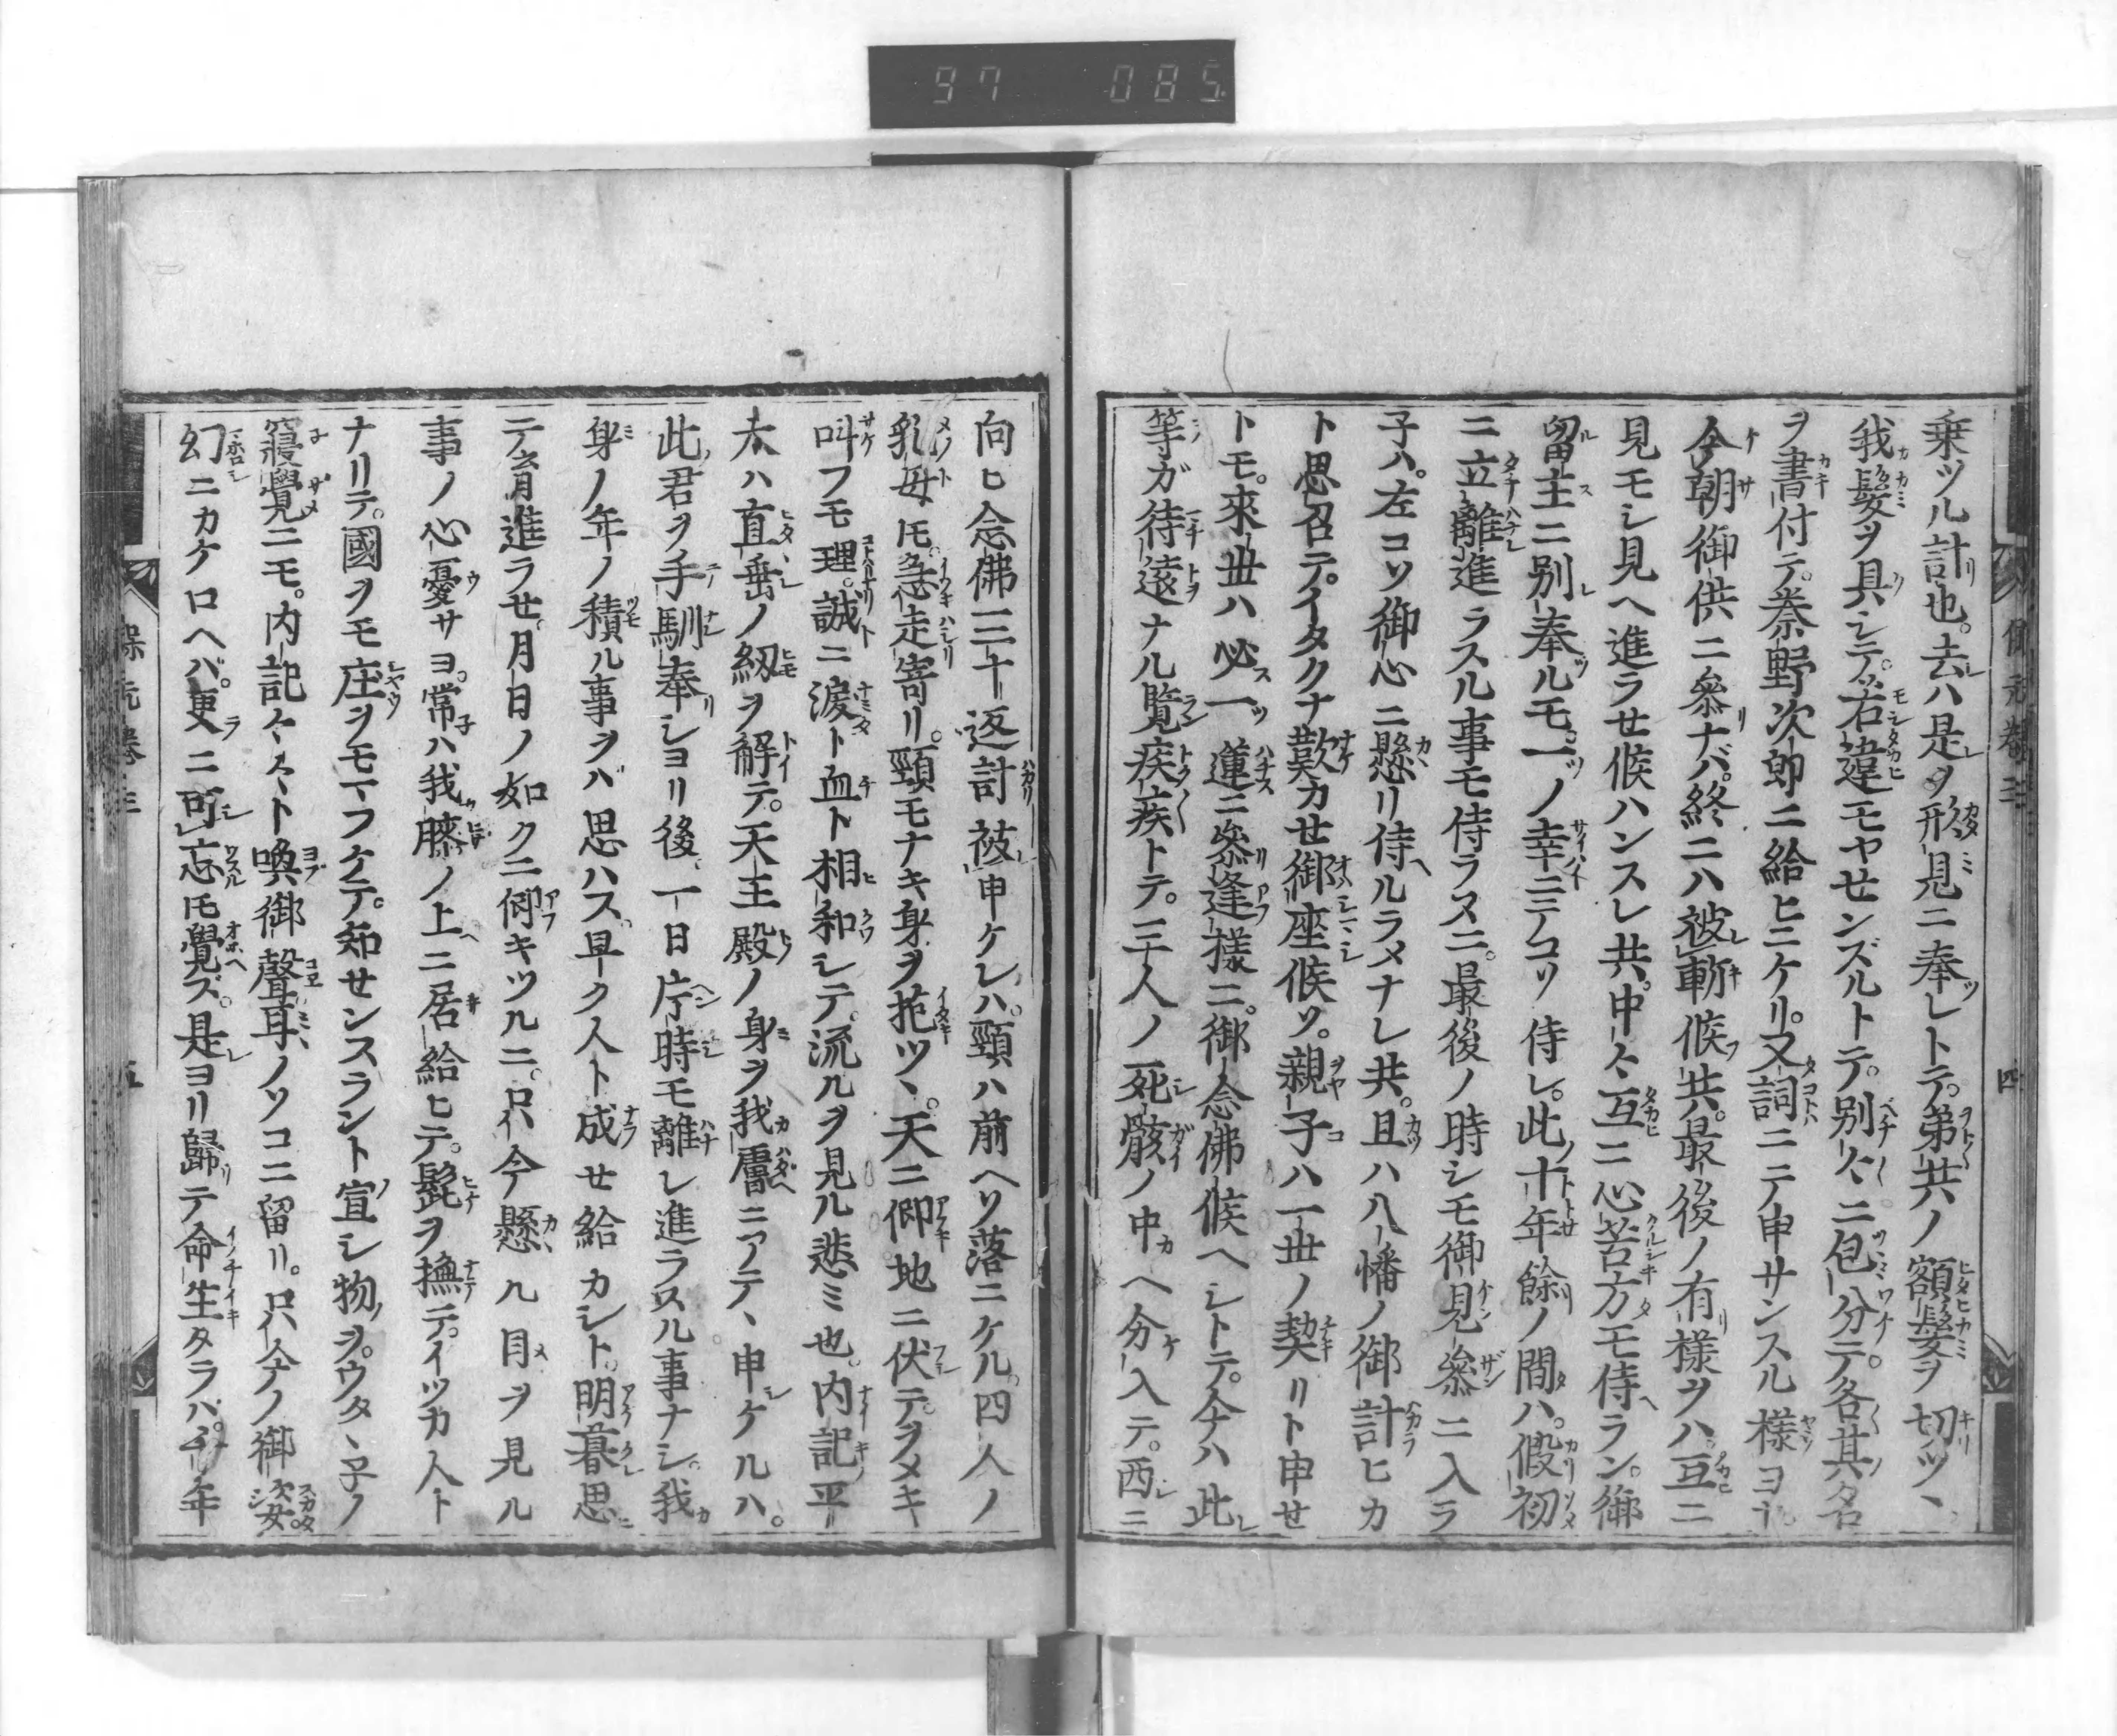 97 085
保元巻三
四
乗ツル計也。去ハ是ヲ形見ニ奉レトテ。弟共ノ額髪ヲ切ツヽ、
我髪ヲ具シテ。若違モヤセンズルトテ。別々ニ包分テ。各其名
ヲ書付テ。秦野次郎ニ給ヒニケリ。又詞ニテ申サンスル様ヨナ
今朝御供ニ參ナバ。終ニハ被斬候共。最後ノ有様ヲハ。互ニ
見モシ見ヘ進ラセ候ハンスレ共。中々互ニ心苦方モ侍ラン。御
留主ニ別奉ルモ。一ノ幸ニテコソ侍レ。此十年餘ノ間ハ。假初
ニ立離進ラスル事モ侍ラヌニ。最後ノ時シモ御見參ニ入ラ
子ハ。左コソ御心ニ懸リ侍ルラメナレ共。且ハ八幡ノ御計ヒカ
ト思召テ。イタクナ歎カせ御座候ソ。親子ハ一世ノ契リト申せ
トモ。來世ハ必一ツ蓮ニ參逢様ニ。御念佛候ヘシトテ。今ハ此
等ガ待遠ナル覧疾疾トテ。三人ノ死骸ノ中ヘ分入テ。西ニ
向ヒ念佛三十返計被申ケレハ。頸ハ前ヘソ落ニケル。四人ノ
乳母圧。急走寄リ。頸モナキ身ヲ抱ツヽ。天ニ仰地ニ伏テ。ヲメキ
叫フモ理。誠ニ涙ト血ト相和シテ。流ルヲ見ル悲ミ也。内記平
太ハ直垂ノ紐ヲ解テ。天王殿ノ身ヲ我膚ニアテヽ申ケルハ。
此君ヲ手馴奉シヨリ後。一日片時モ離レ進ラスル事ナシ。我
身ノ年ノ積ル事ヲバ思ハス。早ク人ト成せ給カシト。明暮思
テ育進ラせ。月日ノ如クニ仰キツルニ。只今懸ル目ヲ見ル
事ノ心憂サヨ。常ハ我膝ノ上ニ居給ヒテ。髭ヲ撫テ。イツカ人ト
ナリテ。國ヲモ庄ヲモマフケテ。知せンスラント宣シ物ヲ。ウタヽ子ノ
寢覺ニモ。内記々々ト喚御聲。耳ノソコニ留リ。只今ノ御姿
幻ニカケロヘバ。更ニ可忘圧覺ズ。是ヨリ歸テ命生タラハ。千年
保元巻三
五